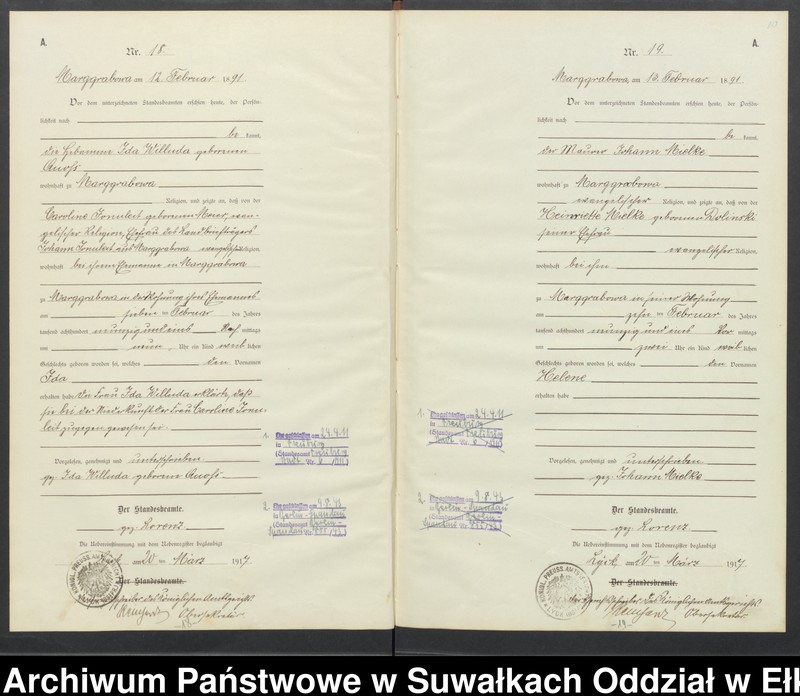 A.
Nr. 18.
Marggrabowa am 12. Februar 1891
Vor dem unterzeichneten Standesbeamten erschien heute, der Persön-
lichkeit nach
be kannt,
die Hebamme Ida Willuda geborenen
wohnhaft zu Marggrabowa
Religion, und zeigte an, daß von der
Caroline geborenen
gelischer Religion, Ehefrau des
Johann aus Marggrabowa Religion,
wohnhaft bei ihrem Ehemanne in Marggrabowa
zu Marggrabowa in der Wohnung ihres Ehemannes
am sieben ten Februar des Jahres
tausend achthundert neunzig und eins Nach mittags
um neun Uhr ein Kind weib lichen
Geschlechts geboren worden sei, welches den Vornamen
Ida
erhalten habe. Die Frau Ida Willuda erklärte, daß
sie bei der Niederkunft der Frau Caroline
zugegen gewesen sei.
Vorgelesen, genehmigt und unterschrieben
gez. Ida Willuda geborene
Der Standesbeamte.
gez. Lorenz
Die Uebereinstimmung mit dem Nebenregister beglaubigt
am 20 ten März 1917
Der Standesbeamte.
des Königlichen Amtsgerichts
Obersekretär
-18-
A.
Nr. 19.
Marggrabowa, am 12. Februar 1891
Vor dem unterzeichneten Standesbeamten erschien heute, der Persön-
lichkeit nach
be kannt,
der Maurer Johann Mielke
wohnhaft zu Marggrabowa
evangelischer Religion, und zeigte an, daß von der
Heinriette Mielke geborenen Dolinski
seiner Ehefrau
evangelischer Religion,
wohnhaft bei ihm
zu Marggrabowa in seiner Wohnung
am zehn ten Februar des Jahres
tausend achthundert neunzig und eins Vor mittags
um zwei Uhr ein Kind weib lichen
Geschlechts geboren worden sei, welches den Vornamen
Helene
erhalten habe
1. Ehegeschlossen am 24.4.11
in
(Standesamt
2. Ehegeschlossen am 9.8.43
in Berlin-Spandau
(Standesamt Berlin-
Spandau Nr. 855/43)
Vorgelesen, genehmigt und unterschrieben
gez. Johann Mielke
Der Standesbeamte.
gez. Lorenz
Die Uebereinstimmung mit dem Nebenregister beglaubigt
Lyck, am 20 ten März 1917
Der Standesbeamte.
des Königlichen Amtsgerichts
Obersekretär
-19-
Archiwum Państwowe w Suwałkach Oddział w Eł